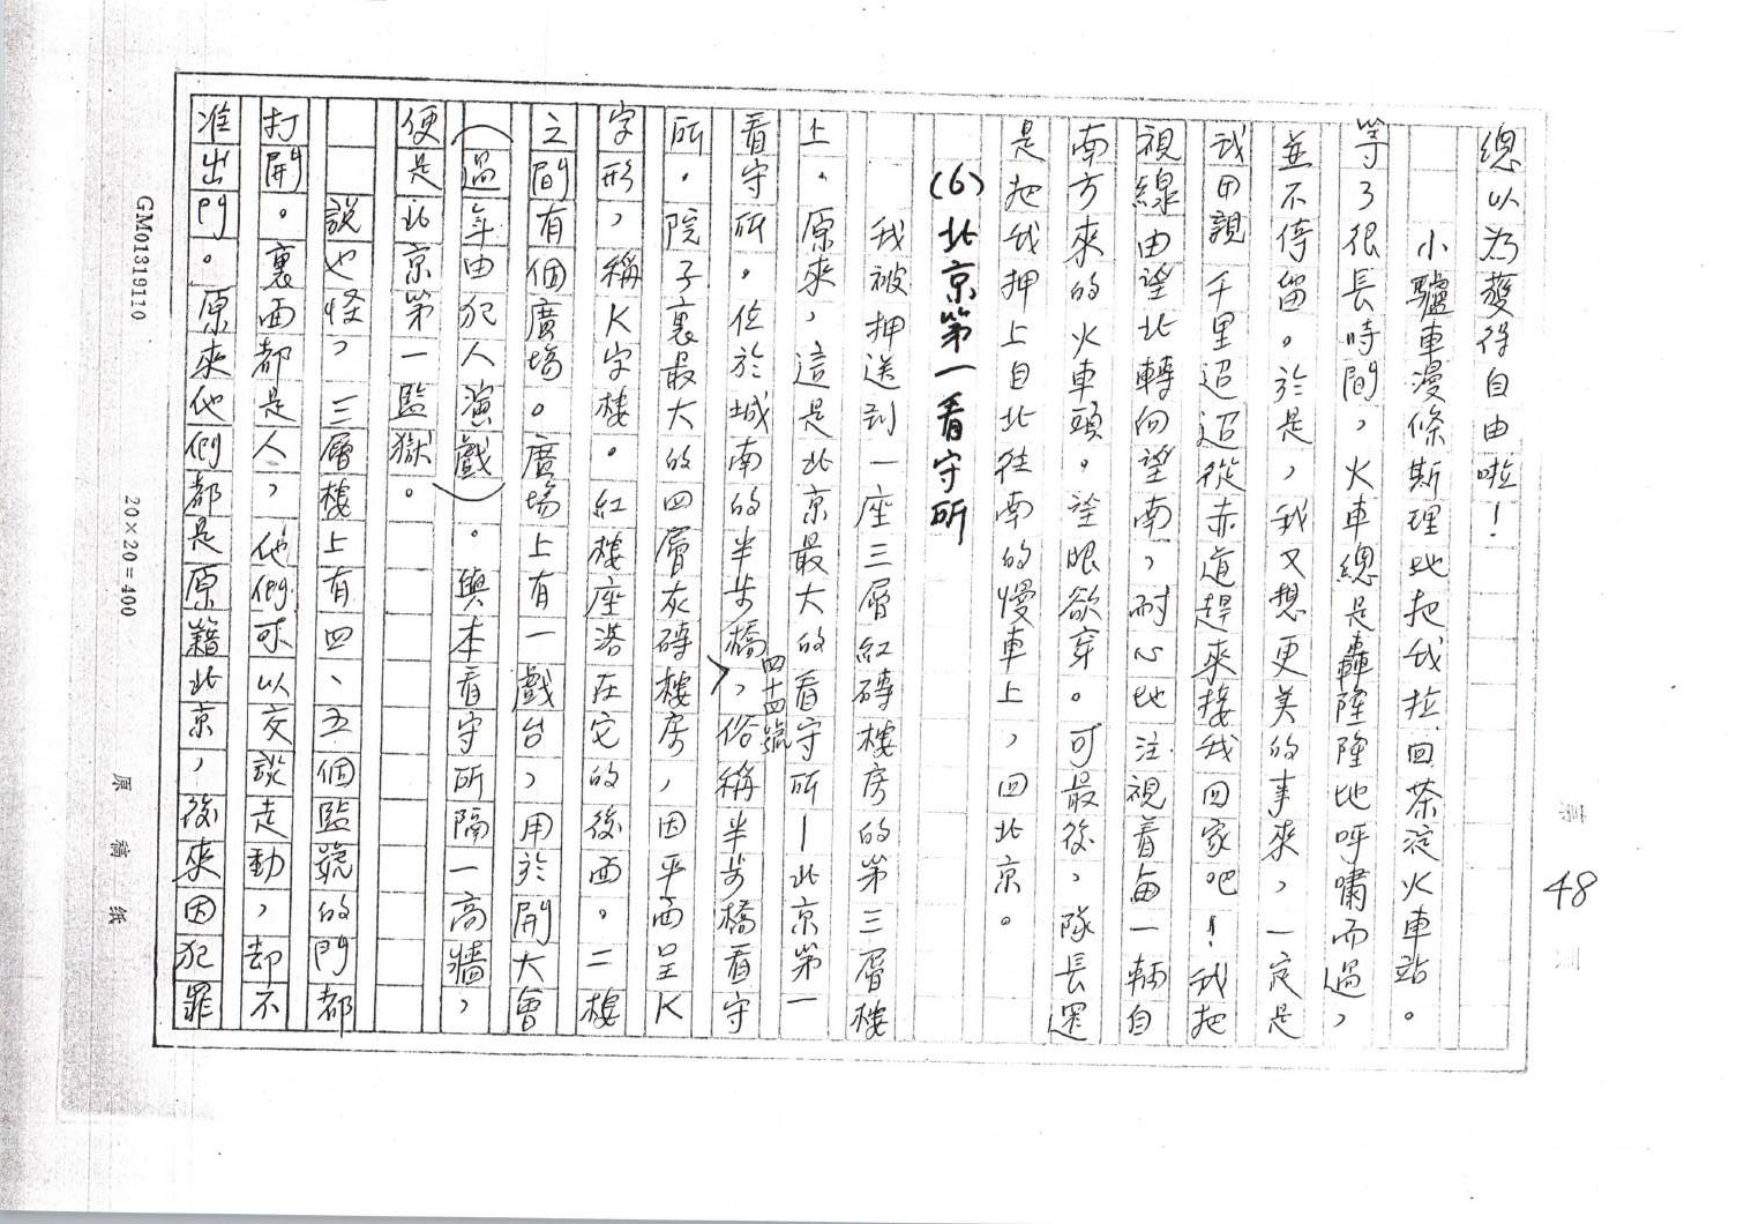 48
總以為獲得自由啦！
小驢車漫條斯理地把我拉回茶淀火車站。
等了很長時間，火車總是轟隆隆地呼嘯而過，
並不停留。於是，我又想更美的事來，一定是
我田親千里迢迢從赤道趕來接我回家吧！我把
視線由望北轉向望南，耐心地注視着每一輛自
南方來的火車頭。望眼欲穿。可最後，隊長還
是把我押上自北往南的慢車上，回北京。
(6)北京第一看守所
我被押送到一座三層紅磚樓房的第三層樓
上。原來，這是北京最大的看守所—北京第一
看守所。位於城南的半步橋四十四號，俗稱半步橋看守
所。院子裏最大的四層灰磚樓房，因平面呈K
字形，稱K字樓。紅樓座落在它的後面。二樓
之間有個廣場。廣場上有一戲台，用於開大會
（過年由犯人演戲）。與本看守所隔一高牆，
便是北京第一監獄。
說也怪，三層樓上有四、五個監號的門都
打開。裏面都是人，他們可以交談走動，却不
准出門。原來他們都是原籍北京，後來因犯罪
GM01319110
20×20=400
原稿紙